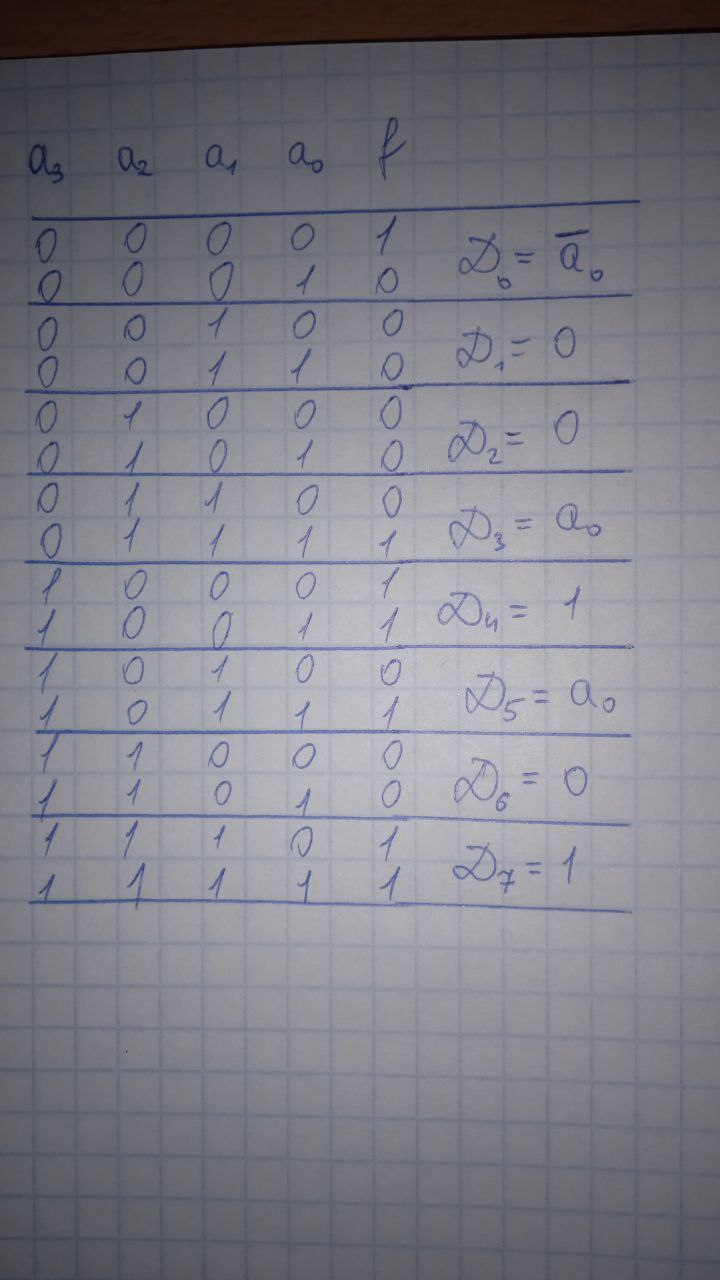 a₃ a₂ a₁ a₀ f
0 0 0 0 1 D₀ = a̅₀
0 0 0 1 0
0 0 1 0 0 D₁ = 0
0 0 1 1 0
0 1 0 0 0 D₂ = 0
0 1 0 1 0
0 1 1 0 0 D₃ = a₀
0 1 1 1 1
1 0 0 0 1 D₄ = 1
1 0 0 1 1
1 0 1 0 0 D₅ = a₀
1 0 1 1 1
1 1 0 0 0 D₆ = 0
1 1 0 1 0
1 1 1 0 1 D₇ = 1
1 1 1 1 1